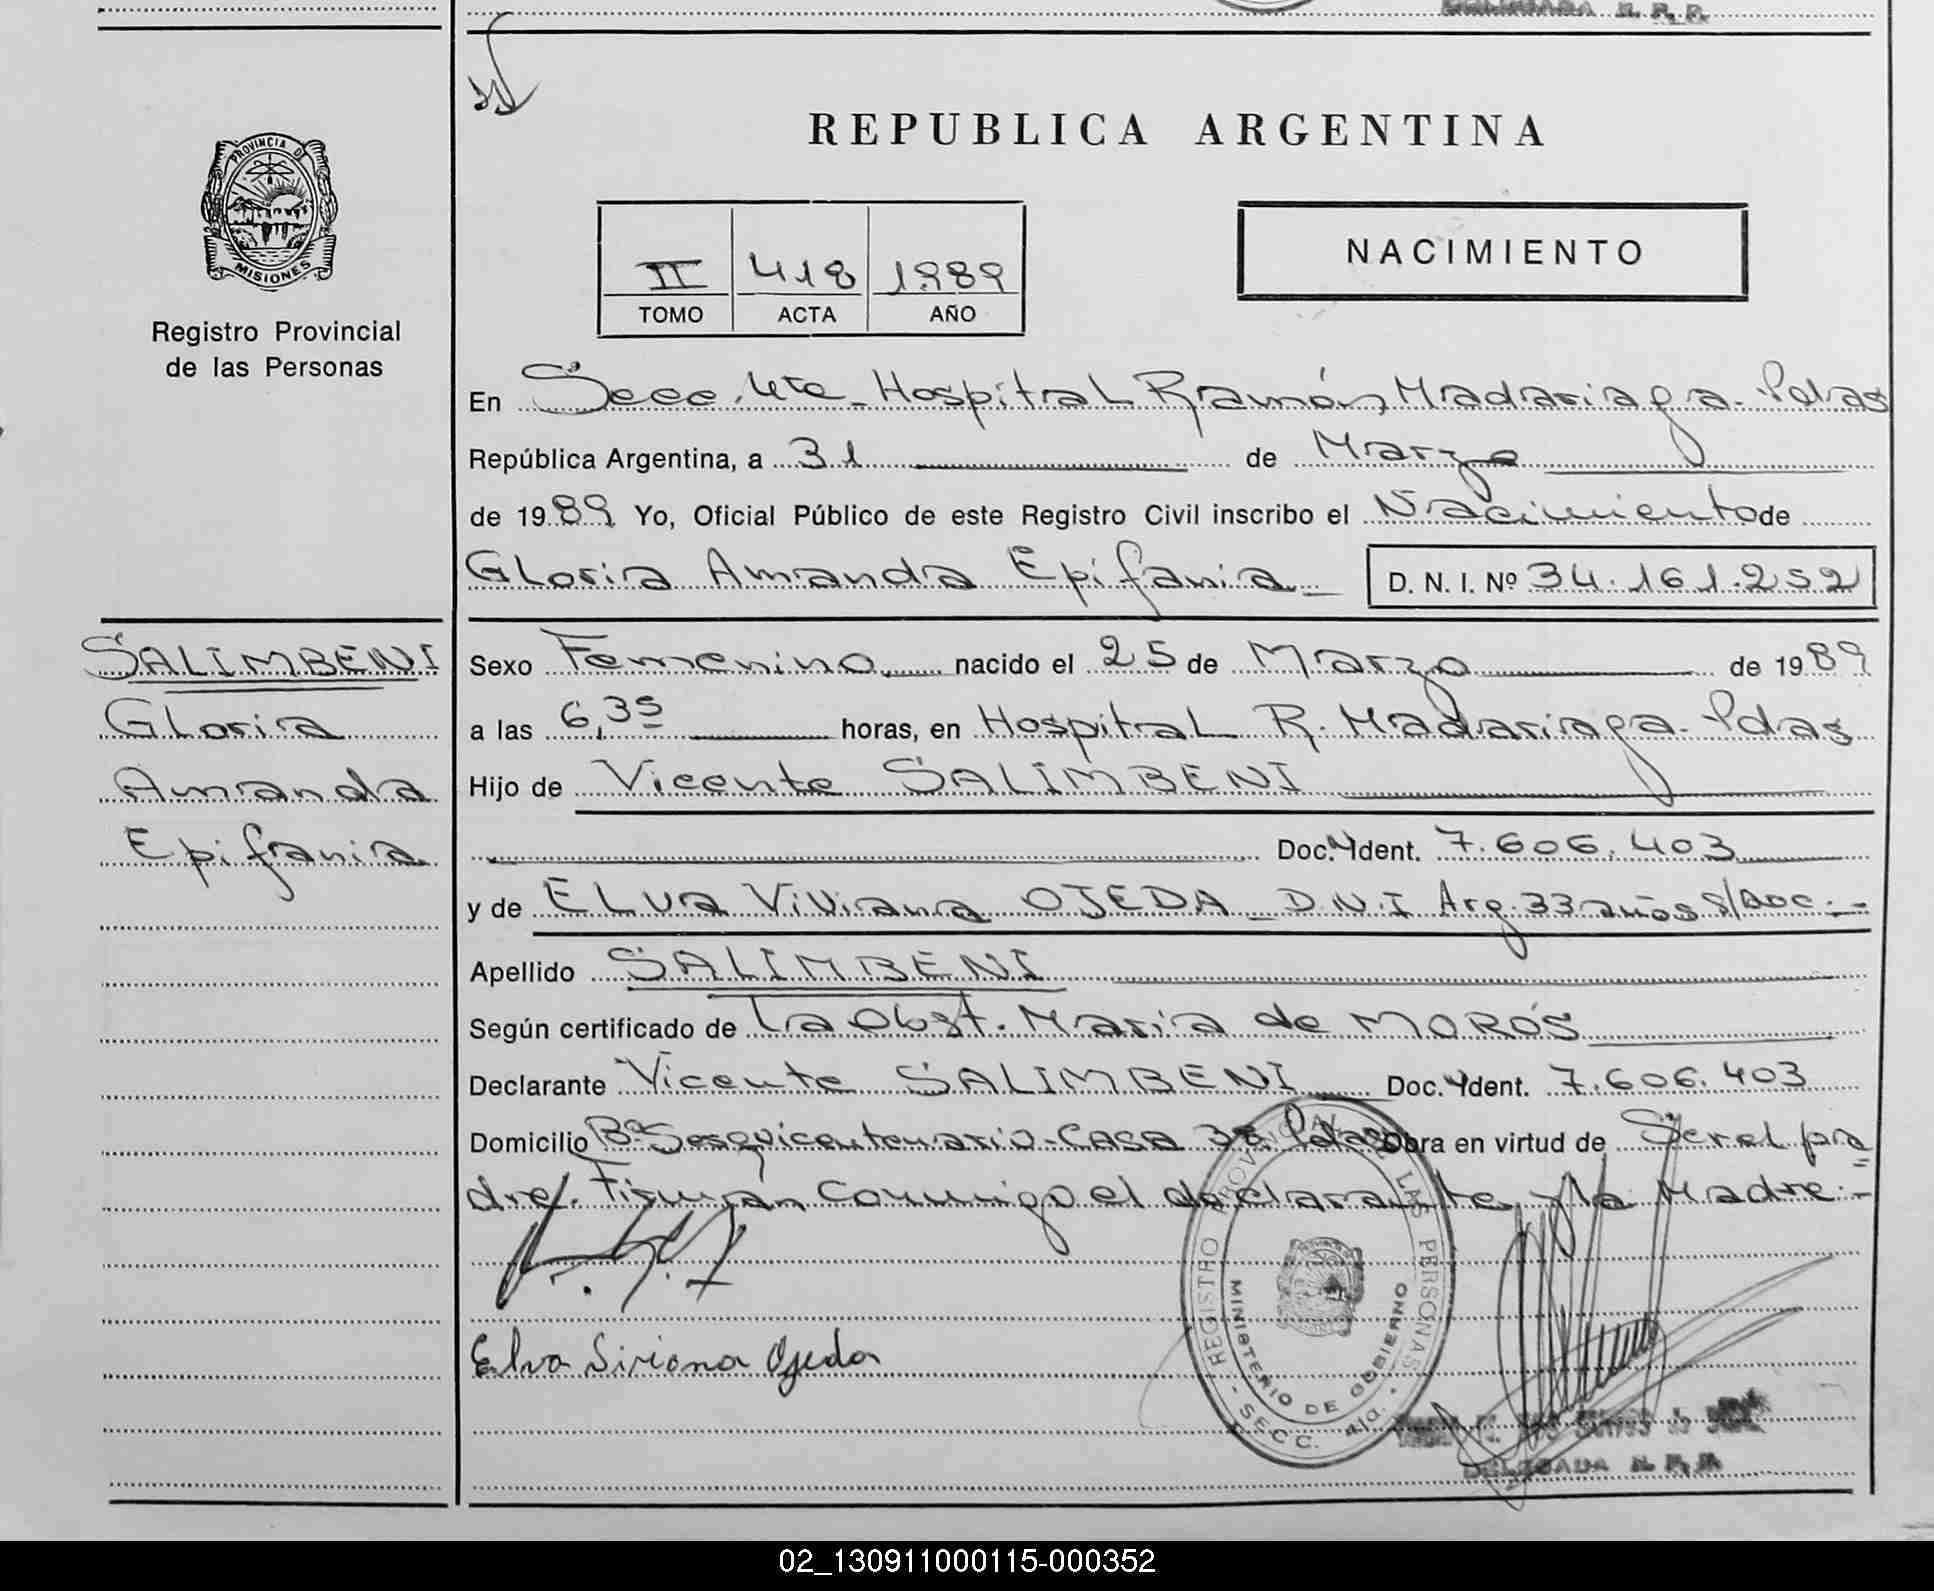 DELEGADA R. P. P.
REPUBLICA ARGENTINA
PROVINCIA DE
MISIONES
Registro Provincial
de las Personas
NACIMIENTO
II 418 1989
TOMO ACTA AÑO
En Secc. 4ta - Hospital Ramón Madariaga - Pdas
República Argentina, a 31 de Marzo
de 1989 Yo, Oficial Público de este Registro Civil inscribo el Nacimiento de
Gloria Amanda Epifania D. N. I. Nº 34.161.252
SALIMBENI
Gloria
Amanda
Epifania
Sexo Femenino nacido el 25 de Marzo de 1989
a las 6,35 horas, en Hospital R. Madariaga - Pdas
Hijo de Vicente SALIMBENI
Doc. Ident. 7.606.403
y de ELVA Viviana OJEDA - D.N.I Arg. 33 años s/Doc.-
Apellido SALIMBENI
Según certificado de La Obst. Maria de MOROS
Declarante Vicente SALIMBENI Doc. Ident. 7.606.403
Domicilio Bº Sesquicentenario - Casa 38 Pdas Obra en virtud de Ser el pa
dre. Firman conmigo el declarante y la Madre.-
Elva Viviana Ojeda
REGISTRO PROVINCIAL DE LAS PERSONAS
MINISTERIO DE GOBIERNO
- SECC. 4ta. -
DELEGADA R. P. P.
02_130911000115-000352